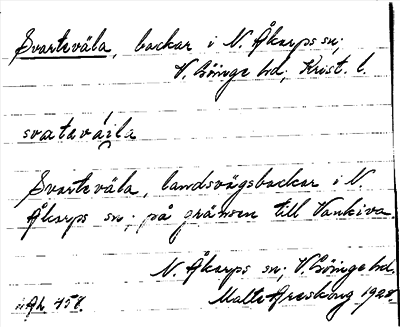 Svarteväla, backar i N. Åkarps sn;
V. Göinge hd, Krist. l.
svatevàila
Svarteväla, landsvägsbackar i N.
Åkarps sn; på gränsen till Vankiva.
N. Åkarps sn; V. Göinge hd.
Ah 458. Malte Areskoug 1928